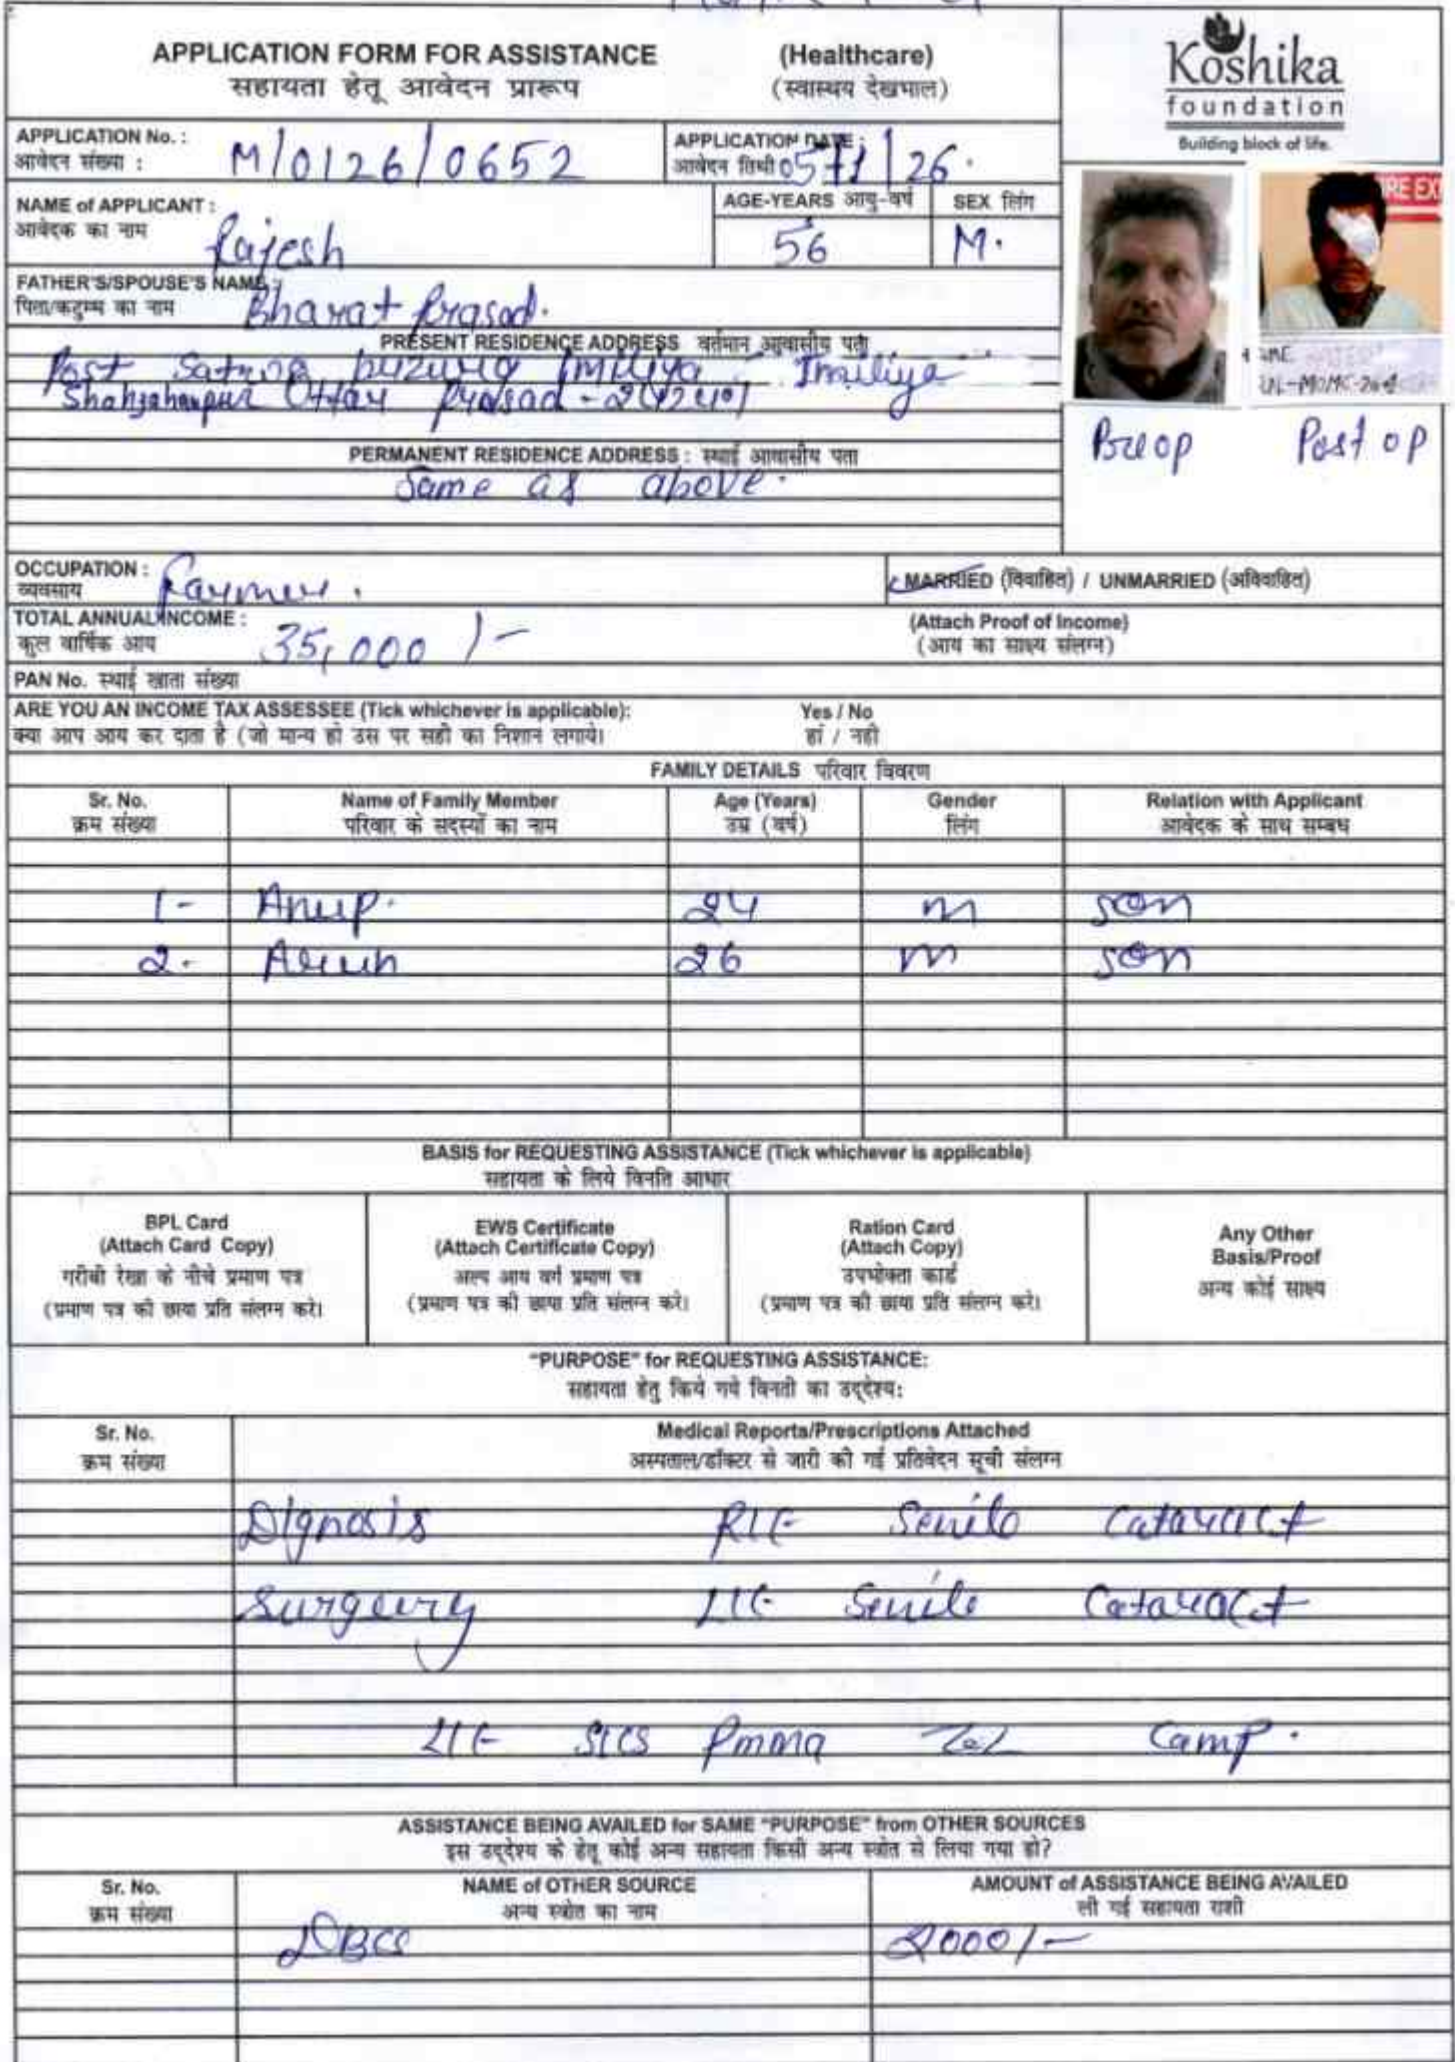 APPLICATION FORM FOR ASSISTANCE (Healthcare)
सहायता हेतू आवेदन प्रारूप (स्वास्थय देखभाल)
Koshika
foundation
Building block of life.
APPLICATION No. :
आवेदन संख्या : M/0126/0652
APPLICATION DATE :
आवेदन तिथी 05/1/26.
NAME of APPLICANT :
आवेदक का नाम Rajesh
AGE-YEARS आयु-वर्ष
56
SEX लिंग
M.
FATHER'S/SPOUSE'S NAME :
पिता/कटुम्ब का नाम Bharat Prasad.
PRESENT RESIDENCE ADDRESS वर्तमान आवासीय पता
Post Satwa buzurg Imiliya Imiliya
Shahjahanpur Uttar Prasad - 242401
PERMANENT RESIDENCE ADDRESS : स्थाई आवासीय पता
Same as above.
RE EX
Pre op Post op
OCCUPATION :
व्यवसाय Farmer.
MARRIED (विवाहित) / UNMARRIED (अविवाहित)
TOTAL ANNUAL INCOME :
कुल वार्षिक आय 35,000/-
(Attach Proof of Income)
(आय का साक्ष्य संलग्न)
PAN No. स्थाई खाता संख्या
ARE YOU AN INCOME TAX ASSESSEE (Tick whichever is applicable): Yes / No
क्या आप आय कर दाता है (जो मान्य हो उस पर सही का निशान लगाये। हां / नही
FAMILY DETAILS परिवार विवरण
Sr. No. Name of Family Member Age (Years) Gender Relation with Applicant
क्रम संख्या परिवार के सदस्यों का नाम उम्र (वर्ष) लिंग आवेदक के साथ सम्बध
1- Anup. 24 m son
2- Arun 26 m son
BASIS for REQUESTING ASSISTANCE (Tick whichever is applicable)
सहायता के लिये विनति आधार
BPL Card
(Attach Card Copy)
गरीबी रेखा के नीचे प्रमाण पत्र
(प्रमाण पत्र की छाया प्रति संलग्न करे।
EWS Certificate
(Attach Certificate Copy)
अल्प आय वर्ग प्रमाण पत्र
(प्रमाण पत्र की छाया प्रति संलग्न करे।
Ration Card
(Attach Copy)
उपभोक्ता कार्ड
(प्रमाण पत्र की छाया प्रति संलग्न करे।
Any Other
Basis/Proof
अन्य कोई साक्ष्य
"PURPOSE" for REQUESTING ASSISTANCE:
सहायता हेतु किये गये विनती का उद्देश्य:
Sr. No. Medical Reports/Prescriptions Attached
क्रम संख्या अस्पताल/डॉक्टर से जारी की गई प्रतिवेदन सूची संलग्न
Dignosis RIE Senile Cataract
Surgery LIE Senile Cataract
LIE SICS Pmma Camp.
ASSISTANCE BEING AVAILED for SAME "PURPOSE" from OTHER SOURCES
इस उद्देश्य के हेतू कोई अन्य सहायता किसी अन्य स्त्रोत से लिया गया हो?
Sr. No. NAME of OTHER SOURCE AMOUNT of ASSISTANCE BEING AVAILED
क्रम संख्या अन्य स्त्रोत का नाम ली गई सहायता राशी
DBCS 2000/-